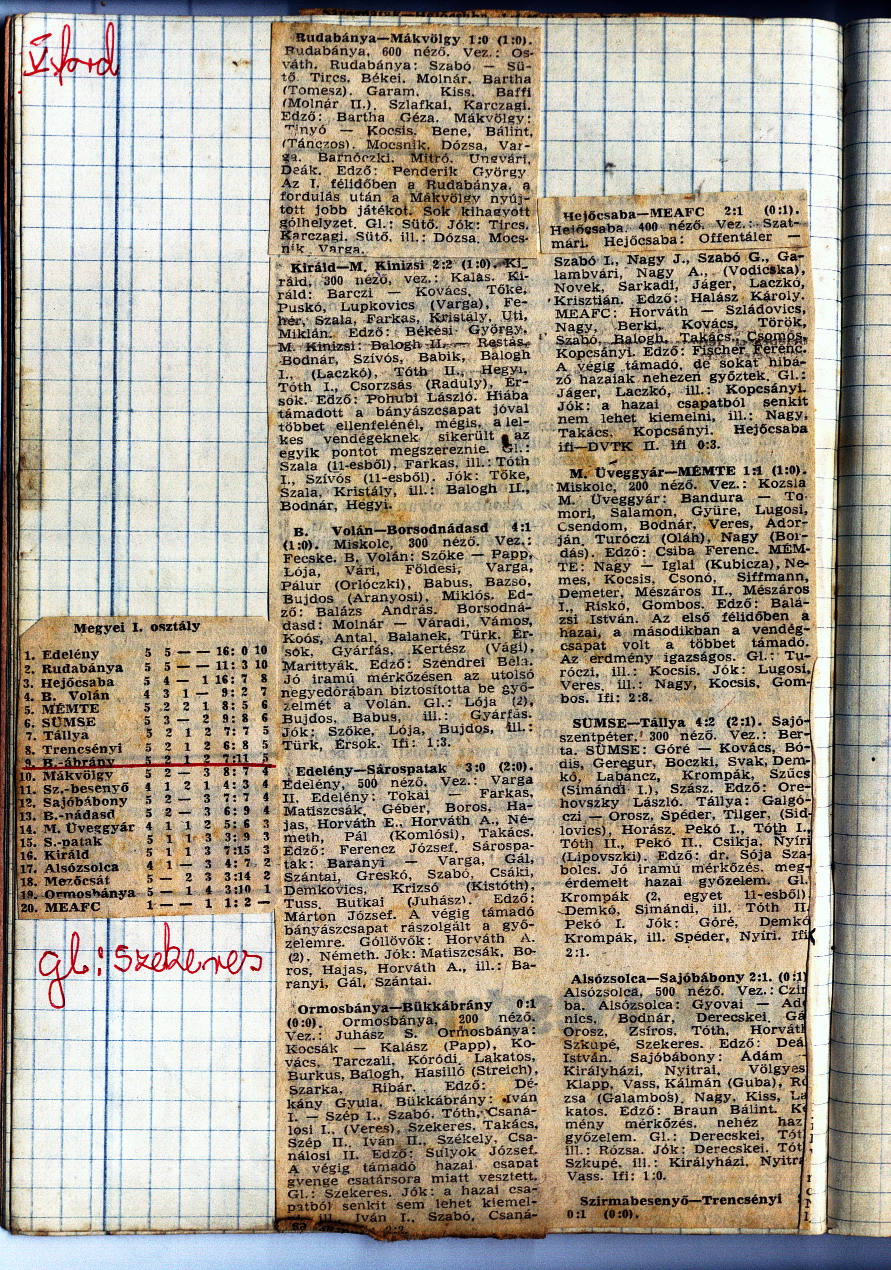 V. ford
Rudabánya—Mákvölgy 1:0 (1:0).
Rudabánya, 600 néző. Vez.: Os-
váth. Rudabánya: Szabó — Sü-
tő. Tircs, Békei. Molnár, Bartha
(Tomesz). Garam. Kiss. Baffi
(Molnár II.). Szlafkai, Karczagi.
Edző: Bartha Géza. Mákvölgy:
— Kocsis, Bene, Bálint,
(Tánczos). Mocsnik, Dózsa, Var-
ga. Barnóczki, Mitró. Ungvári,
Deák. Edző: Penderik György
Az I. félidőben a Rudabánya, a
fordulás után a Mákvölgy nyúj-
tott jobb játékot. Sok kihagyott
gólhelyzet. Gl.: Sütő. Jók: Tircs,
Karczagi, Sütő, ill.: Dózsa, Mocs-
nik, Varga.
Királd—M. Kinizsi 2:2 (1:0). Ki-
ráld, 300 néző, vez.: Kalás. Ki-
ráld: Barczi — Kovács, Tőke,
Puskó, Lupkovics (Varga), Fe-
hér, Szala, Farkas, Kristály, Uti,
Miklán. Edző: Békési György.
M. Kinizsi: Balogh II. — Restás,
Bodnár, Szívós, Babik, Balogh
I., (Laczkó), Tóth II., Hegyi,
Tóth I., Csorzsás (Raduly), Ér-
sok. Edző: Pohubi László. Hiába
támadott a bányászcsapat jóval
többet ellenfelénél, mégis, a lel-
kes vendégeknek sikerült az
egyik pontot megszereznie. Gl.:
Szala (11-esből), Farkas, ill.: Tóth
I., Szívós (11-esből). Jók: Tőke,
Szala, Kristály, ill.: Balogh II.,
Bodnár, Hegyi.
B. Volán—Borsodnádasd 4:1
(1:0). Miskolc, 300 néző. Vez.:
Fecske. B. Volán: Szőke — Papp,
Lója, Vári, Földesi, Varga,
Pálur (Orlóczki), Babus, Bazsó,
Bujdos (Aranyosi), Miklós. Ed-
ző: Balázs András. Borsodná-
dasd: Molnár — Váradi, Vámos,
Koós, Antal, Balanek, Türk. Ér-
sök, Gyárfás, Kertész (Vági),
Marittyák. Edző: Szendrei Béla.
Jó iramú mérkőzésen az utolsó
negyedórában biztosította be győ-
zelmét a Volán. Gl.: Lója (2),
Bujdos, Babus, ill.: Gyárfás.
Jók: Szőke, Lója, Bujdos, ill.:
Türk, Érsok. Ifi: 1:3.
Edelény—Sárospatak 3:0 (2:0).
Edelény, 500 néző. Vez.: Varga
II. Edelény: Tokai — Farkas,
Matiszcsák, Géber, Boros, Ha-
jas, Horváth E., Horváth A., Né-
meth, Pál (Komlósi), Takács.
Edző: Ferencz József. Sárospa-
tak: Baranyi — Varga, Gál,
Szántai, Greskó, Szabó, Csáki,
Demkovics, Krizsó (Kistóth),
Tuss, Butkai (Juhász). Edző:
Márton József. A végig támadó
bányászcsapat rászolgált a győ-
zelemre. Góllövők: Horváth A.
(2). Németh. Jók: Matiszcsák, Bo-
ros, Hajas, Horváth A., ill.: Ba-
ranyi, Gál, Szántai.
Ormosbánya—Bükkábrány 0:1
(0:0). Ormosbánya, 200 néző.
Vez.: Juhász S. Ormosbánya:
Kocsák — Kalász (Papp), Ko-
vács, Tarczali, Kóródi, Lakatos,
Burkus, Balogh, Hasilló (Streich),
Szarka, Ribár. Edző: Dé-
kány Gyula, Bükkábrány: Iván
I. — Szép I., Szabó, Tóth, Csaná-
losi I., (Veres), Szekeres, Takács,
Szép II., Iván II., Székely, Csa-
nálosi II. Edző: Sulyok József.
A végig támadó hazai csapat
gyenge csatársora miatt vesztett.
Gl.: Szekeres. Jók: a hazai csa-
patból senkit sem lehet kiemel-
ill. Iván I., Szabó, Csaná-
Megyei I. osztály
1. Edelény 5 5 — — 16: 0 10
2. Rudabánya 5 5 — — 11: 3 10
3. Hejőcsaba 5 4 — 1 16: 7 8
4. B. Volán 4 3 1 — 9: 2 7
5. MÉMTE 5 2 2 1 8: 5 6
6. SÜMSE 5 3 — 2 9: 8 6
7. Tállya 5 2 1 2 7: 7 5
8. Trencsényi 5 2 1 2 6: 8 5
9. B.-ábrány 5 2 1 2 7:11 5
10. Mákvölgy 5 2 — 3 8: 7 4
11. Sz.-besenyő 4 1 2 1 4: 3 4
12. Sajóbábony 5 2 — 3 7: 7 4
13. B.-nádasd 5 2 — 3 6: 9 4
14. M. Üveggyár 4 1 1 2 5: 6 3
15. S.-patak 5 1 1 3 3: 9 3
16. Királd 5 1 1 3 7:15 3
17. Alsózsolca 4 1 — 3 4: 7 2
18. Mezőcsát 5 — 2 3 3:14 2
19. Ormosbánya 5 — 1 4 3:10 1
20. MEAFC 1 — — 1 1: 2 —
gl.: Szekeres
Hejőcsaba—MEAFC 2:1 (0:1).
Hejőcsaba. 400 néző. Vez.: Szat-
mári. Hejőcsaba: Offentáler —
Szabó I., Nagy J., Szabó G., Ga-
lambvári, Nagy A., (Vodicska),
Novek, Sarkadi, Jáger, Laczkó,
Krisztián. Edző: Halász Károly.
MEAFC: Horváth — Szládovics,
Nagy, Berki, Kovács, Török,
Szabó, Balogh, Takács, Csomós,
Kopcsányi. Edző: Fischer Ferenc.
A végig támadó, de sokat hibá-
zó hazaiak nehezen győztek. Gl.:
Jáger, Laczkó, ill.: Kopcsányi.
Jók: a hazai csapatból senkit
nem lehet kiemelni, ill.: Nagy,
Takács, Kopcsányi. Hejőcsaba
ifi—DVTK II. ifi 0:3.
M. Üveggyár—MÉMTE 1:1 (1:0).
Miskolc, 200 néző. Vez.: Kozsla
M. Üveggyár: Bandura — To-
mori, Salamon, Gyüre, Lugosi,
Csendom, Bodnár, Veres, Ador-
ján, Turóczi (Oláh), Nagy (Bor-
dás). Edző: Csiba Ferenc. MÉM-
TE: Nagy — Iglai (Kubicza), Ne-
mes, Kocsis, Csonó, Siffmann,
Demeter, Mészáros II., Mészáros
I., Riskó, Gombos. Edző: Balá-
zsi István. Az első félidőben a
hazai, a másodikban a vendég-
csapat volt a többet támadó.
Az erdmény igazságos. Gl.: Tu-
róczi, ill.: Kocsis. Jók: Lugosi,
Veres, ill.: Nagy, Kocsis, Gom-
bos. Ifi: 2:8.
SÜMSE—Tállya 4:2 (2:1). Sajó-
szentpéter, 300 néző. Vez.: Ber-
ta. SÜMSE: Góré — Kovács, Bó-
dis, Geregur, Boczki, Svak, Dem-
kó, Labancz, Krompák, Szűcs
(Simándi I.), Szász. Edző: Ore-
hovszky László. Tállya: Galgó-
czi — Orosz, Spéder, Tilger, (Sid-
lovics), Horász. Pekó I., Tóth I.,
Tóth II., Pekó II., Csikja, Nyíri
(Lipovszki). Edző: dr. Sója Sza-
bolcs. Jó iramú mérkőzés, meg-
érdemelt hazai győzelem. Gl.
Krompák (2, egyet 11-esből),
Demkó, Simándi, ill. Tóth II.
Pekó I. Jók: Góré, Demkó
Krompák, ill. Spéder, Nyíri. Ifi
2:1.
Alsózsolca—Sajóbábony 2:1. (0:1)
Alsózsolca, 500 néző. Vez.:
ba. Alsózsolca: Gyovai —
nics, Bodnár, Derecskei,
Orosz, Zsíros, Tóth, Horváth
Szkupé, Szekeres. Edző:
István. Sajóbábony: Adám
Királyházi, Nyitrai, Völgyes
Klapp, Vass, Kálmán (Guba),
zsa (Galambos), Nagy, Kiss, La
katos. Edző: Braun Bálint. Ke
mény mérkőzés, nehéz haz
győzelem. Gl.: Derecskei, Tót
ill.: Rózsa. Jók: Derecskei. Tót
Szkupé, ill.: Királyházi, Nyitra
Vass. Ifi: 1:0.
Szirmabesenyő—Trencsényi
0:1 (0:0).